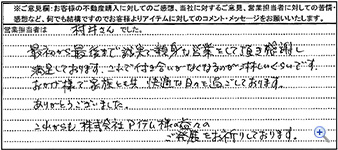 ※ご意見欄：お客様の不動産購入に対してのご感想、当社に対するご意見、営業担当者に対しての苦情・
感想など、何でも結構ですのでお客様よりアイテムに対してのコメント・メッセージをお願いいたします。
営業担当者は 村井さん でした。
最初から最後まで誠実で親身な営業をして頂き感謝し
満足しております。これで付き合いがなくなるのが淋しいくらいです。
おかげ様で家族とも共 快適な日々を過ごしております。
ありがとうございました。
これからも 株式会社アイテム様の益々の
ご発展をお祈りしております。